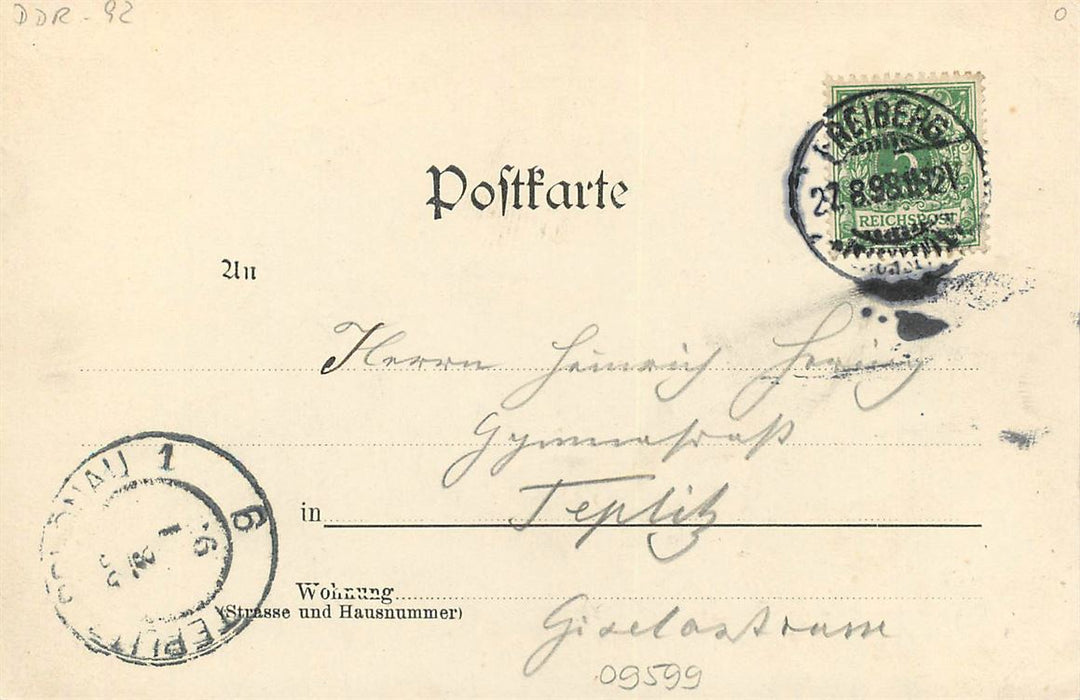 DDR-92
0
FREIBERG
5
27.8.98.11-12V.
REICHSPOST
Postkarte
An
Herrn Heinrich Hering
Gymnasiast
in Teplitz
Wohnung
(Strasse und Hausnummer)
Giselastrasse
09599
TEPLITZ SCHÖNAU 1